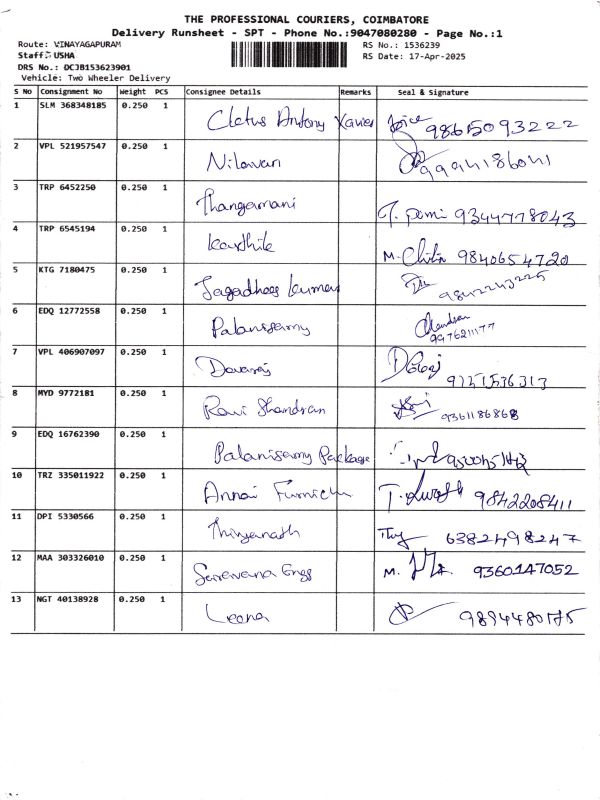 THE PROFESSIONAL COURIERS, COIMBATORE
Delivery Runsheet - SPT - Phone No.:9047080280 - Page No.:1
Route: VINAYAGAPURAM RS No.: 1536239
Staff: USHA RS Date: 17-Apr-2025
DRS No.: DCJB153623901
Vehicle: Two Wheeler Delivery
S No Consignment No Weight PCS Consignee Details Remarks Seal & Signature
1 SLM 368348185 0.250 1 Cletus Antony Xavier Joice 98615093222
2 VPL 521957547 0.250 1 Nilavan 9994186041
3 TRP 6452250 0.250 1 Thangamani 9344778043
4 TRP 6545194 0.250 1 Karthik M. 9840654720
5 KTG 7180475 0.250 1 Jagadhees kumar
6 EDQ 12772558 0.250 1 Palanisamy Chandran
7 VPL 406907097 0.250 1 Davaraj
8 MYD 9772181 0.250 1 Ravi Shandran 9361186868
9 EDQ 16762390 0.250 1 Palanisamy Package
10 TRZ 335011922 0.250 1 Annai T. 9842208411
11 DPI 5330566 0.250 1 6382498247
12 MAA 303326010 0.250 1 Saravana Engg M. 9360147052
13 NGT 40138928 0.250 1 Leona